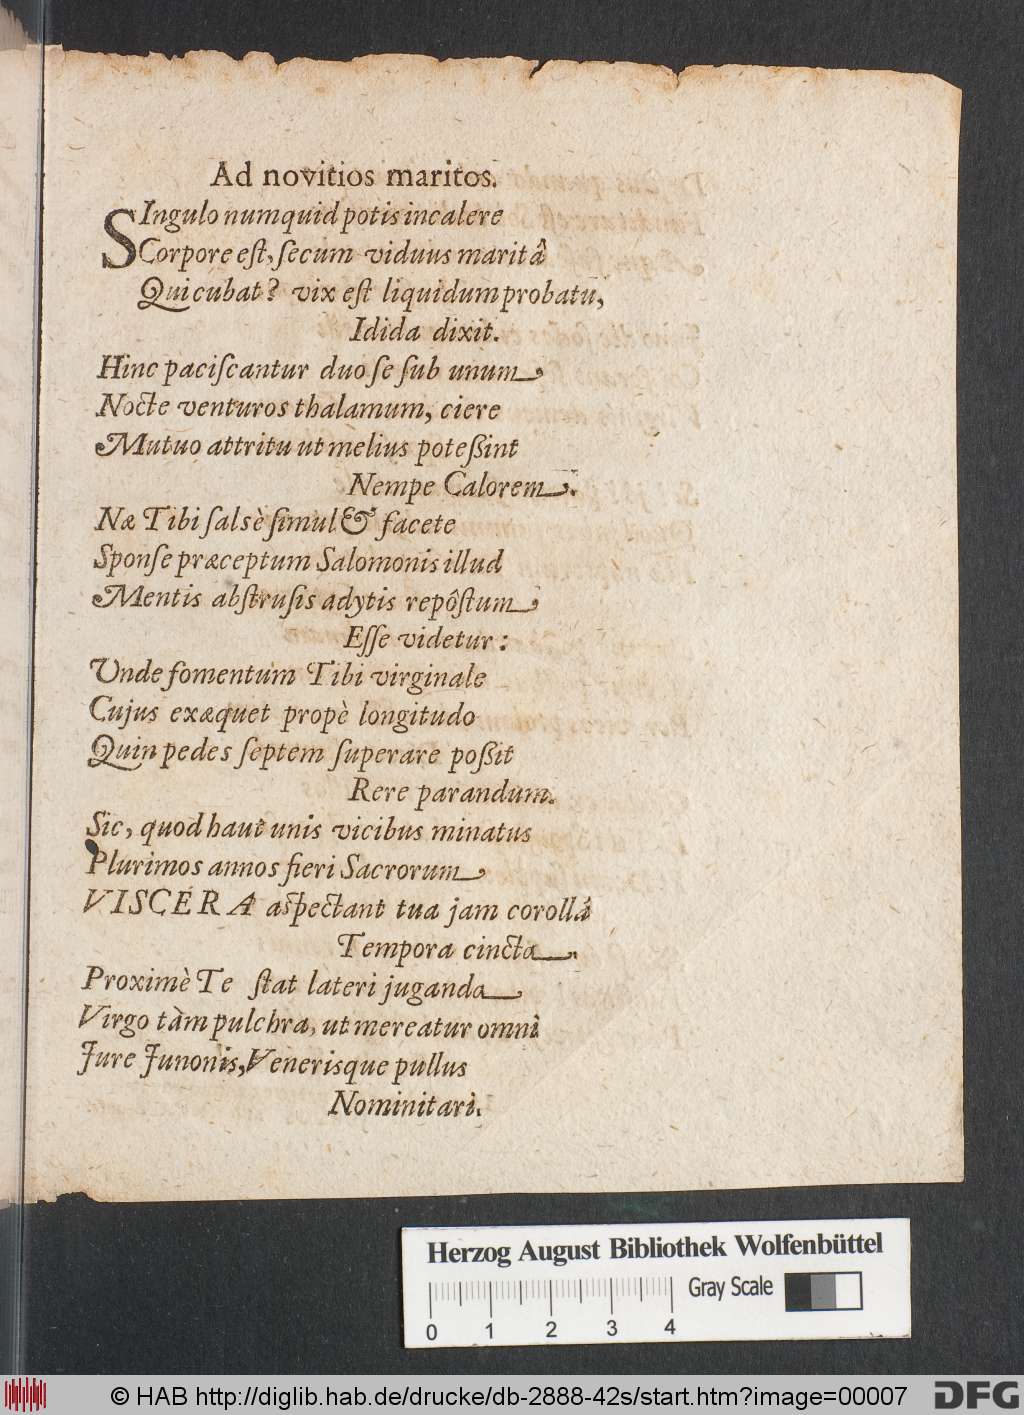 Ad novitios maritos.
SIngulo numquid potis incalere
Corpore est, secum viduus maritâ
Qui cubat? vix est liquidum probatu,
Idida dixit.
Hinc paciscantur duo se sub unum,
Nocte venturos thalamum, ciere
Mutuo attritu ut melius poteßint
Nempe Calorem.
Næ Tibi salsè simul & facete
Sponse præceptum Salomonis illud
Mentis abstrusis adytis repôstum,
Esse videtur:
Unde fomentum Tibi virginale
Cujus exæquet propè longitudo
Quin pedes septem superare poßit
Rere parandum.
Sic, quod haut unis vicibus minatus
Plurimos annos fieri Sacrorum,
VISCERA aspectant tua jam corollâ
Tempora cincta.
Proximè Te stat lateri juganda,
Virgo tàm pulchra, ut mereatur omni
Jure Junonis, Venerisque pullus
Nominitari.
Herzog August Bibliothek Wolfenbüttel
Gray Scale
0 1 2 3 4
© HAB http://diglib.hab.de/drucke/db-2888-42s/start.htm?image=00007
DFG